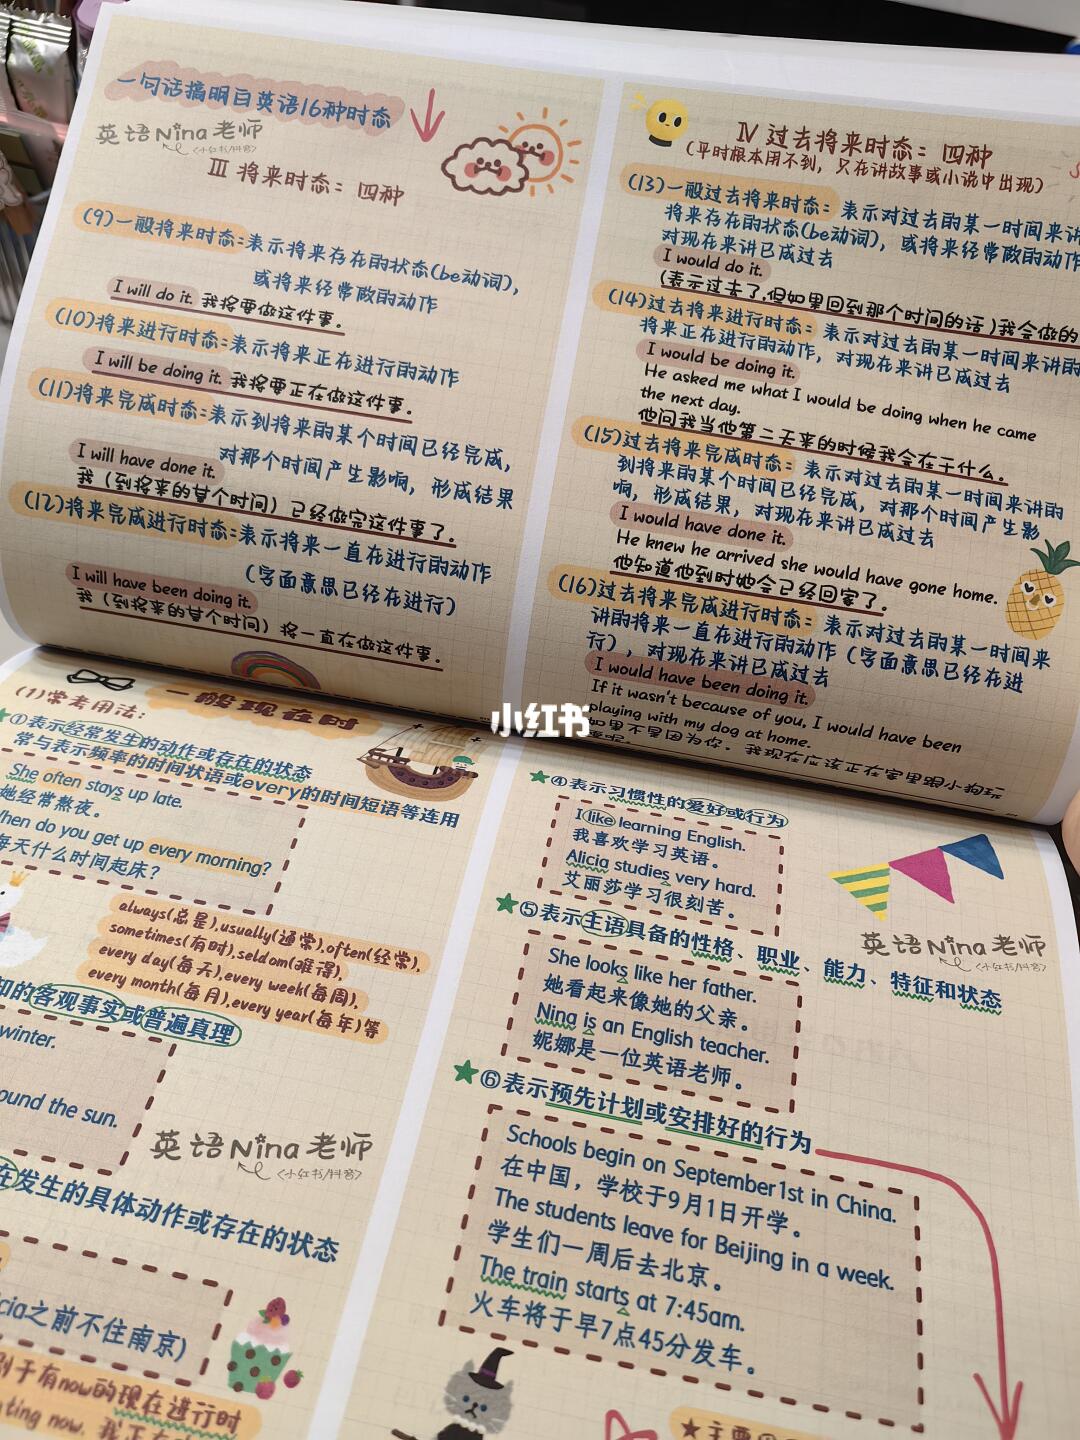 一句话搞明白英语16种时态
英语Nina老师
<小红书/抖音>
Ⅲ 将来时态：四种
(9)一般将来时态：表示将来存在的状态(be动词)，
或将来经常做的动作
I will do it. 我将要做这件事。
(10)将来进行时态：表示将来正在进行的动作
I will be doing it. 我将要正在做这件事。
(11)将来完成时态：表示到将来的某个时间已经完成，
对那个时间产生影响，形成结果
I will have done it.
我（到将来的某个时间）已经做完这件事了。
(12)将来完成进行时态：表示将来一直在进行的动作
（字面意思已经在进行）
I will have been doing it.
我（到将来的某个时间）将一直在做这件事。
Ⅳ 过去将来时态：四种
(平时根本用不到，只在讲故事或小说中出现)
(13)一般过去将来时态：表示对过去的某一时间来讲
将来存在的状态(be动词)，或将来经常做的动作
对现在来讲已成过去
I would do it.
(表示过去了，但如果回到那个时间的话)我会做的
(14)过去将来进行时态：表示对过去的某一时间来讲的
将来正在进行的动作，对现在来讲已成过去
I would be doing it.
He asked me what I would be doing when he came
the next day.
他问我当他第二天来的时候我会在干什么。
(15)过去将来完成时态：表示对过去的某一时间来讲的
到将来的某个时间已经完成，对那个时间产生影
响，形成结果，对现在来讲已成过去
I would have done it.
He knew he arrived she would have gone home.
他知道他到时她会已经回家了。
(16)过去将来完成进行时态：表示对过去的某一时间来
讲的将来一直在进行的动作（字面意思已经在进
行），对现在来讲已成过去
I would have been doing it.
If it wasn't because of you, I would have been
playing with my dog at home.
如果不是因为你，我现在应该正在家里跟小狗玩
小红书
一般现在时
(1)常考用法：
①表示经常发生的动作或存在的状态
常与表示频率的时间状语或every的时间短语等连用
She often stays up late.
她经常熬夜。
When do you get up every morning?
每天什么时间起床？
always(总是),usually(通常),often(经常),
sometimes(有时),seldom(难得),
every day(每天),every week(每周),
every month(每月),every year(每年)等
知的客观事实或普遍真理
winter.
ound the sun.
英语Nina老师
<小红书/抖音>
在发生的具体动作或存在的状态
icia之前不住南京)
别于有now的现在进行时
ating now.
④表示习惯性的爱好或行为
I like learning English.
我喜欢学习英语。
Alicia studies very hard.
艾丽莎学习很刻苦。
英语Nina老师
<小红书/抖音>
⑤表示主语具备的性格、职业、能力、特征和状态
She looks like her father.
她看起来像她的父亲。
Nina is an English teacher.
妮娜是一位英语老师。
⑥表示预先计划或安排好的行为
Schools begin on September1st in China.
在中国，学校于9月1日开学。
The students leave for Beijing in a week.
学生们一周后去北京。
The train starts at 7:45am.
火车将于早7点45分发车。